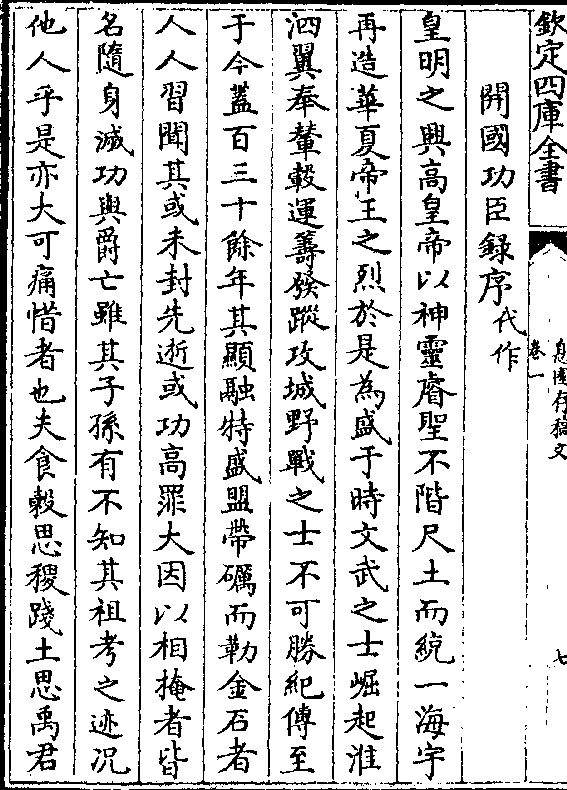 欽定四庫全書
卷一
七
開國功臣録序代作
皇明之興高皇帝以神靈睿聖不階尺土而統一海宇
再造華夏帝王之烈於是為盛于時文武之士崛起淮
泗翼奉輦轂運籌發蹤攻城野戰之士不可勝紀傳至
于今蓋百三十餘年其顯融特盛盟帶礪而勒金石者
人人習聞其或未封先逝或功高罪大因以相掩者皆
名隨身滅功與爵亡雖其子孫有不知其祖考之迹况
他人乎是亦大可痛惜者也夫食穀思稷踐土思禹君